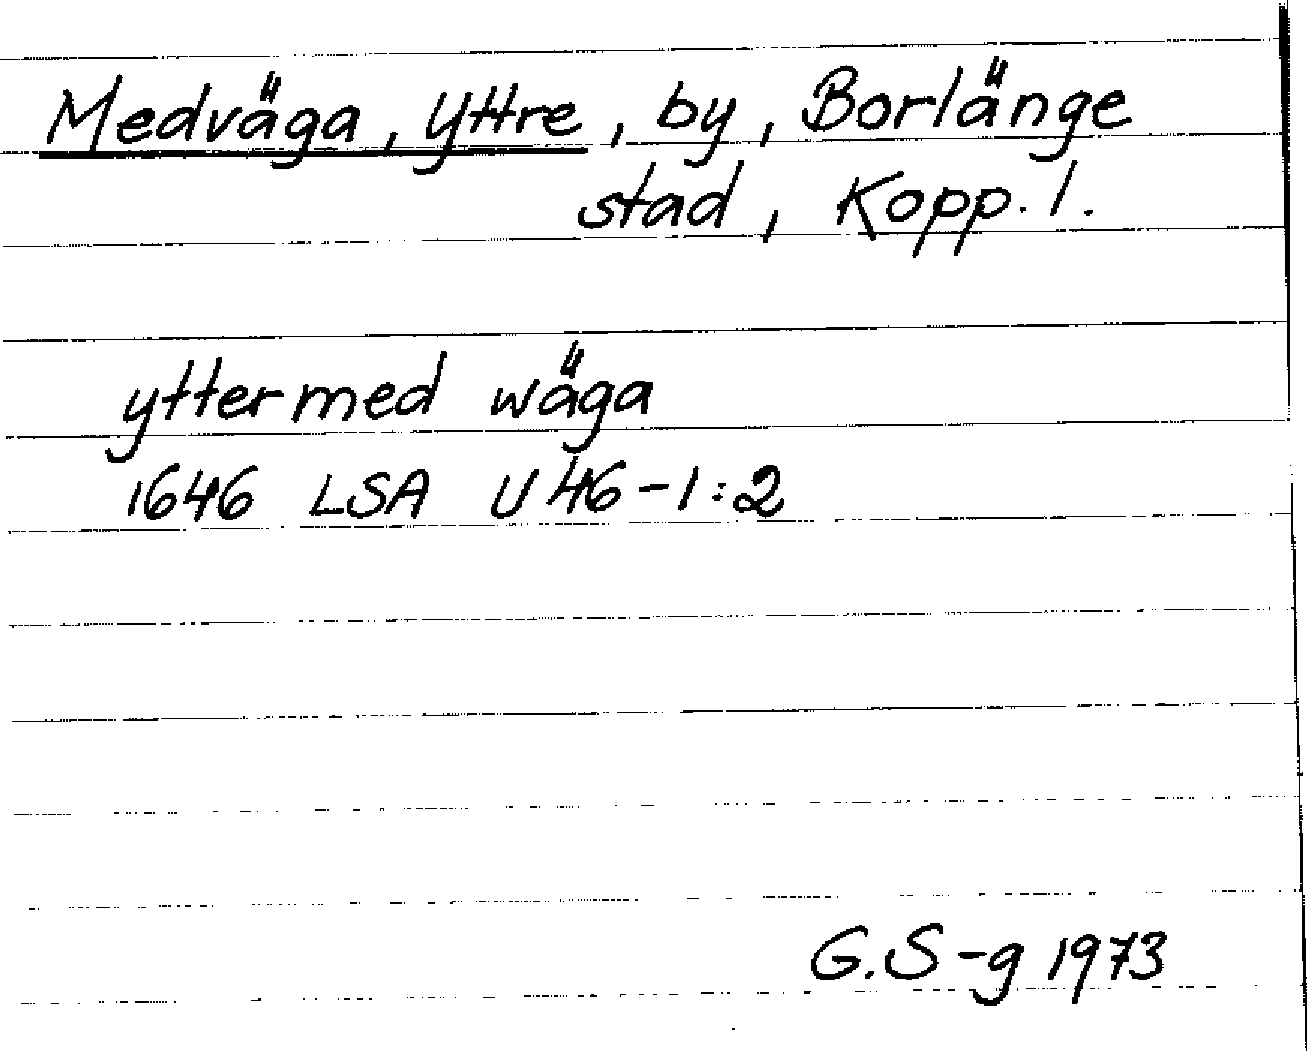 Medväga, Yttre, by, Borlänge
stad, Kopp. l.
ytter med wäga
1646 LSA U 46-1:2
G.S-g 1973